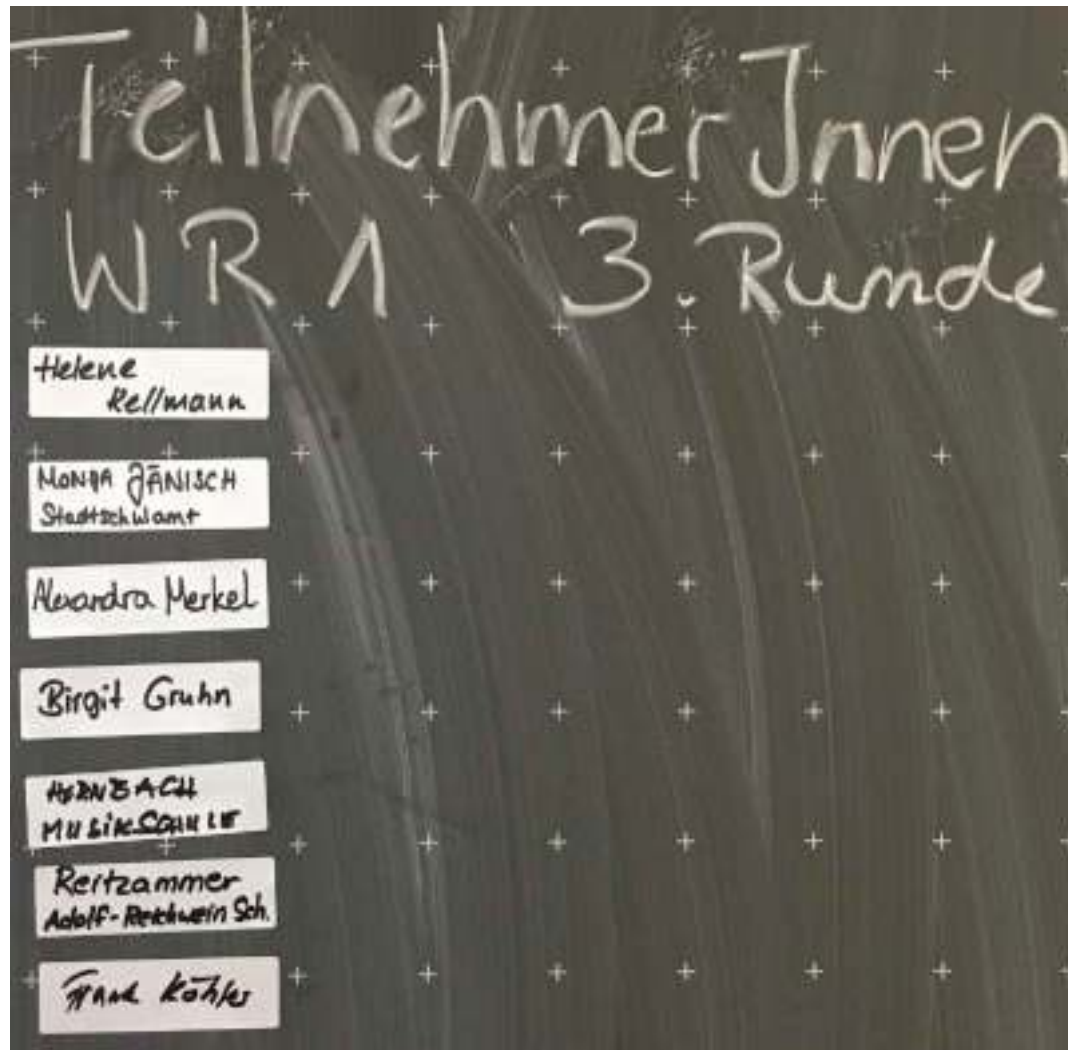 TeilnehmerInnen
WR1 3. Runde
Helene
Kellmann
MONJA JÄNISCH
Stadtschulamt
Alexandra Merkel
Birgit Gruhn
MUSIKSCHULE
Reitzammer
Adolf-Reichwein Sch.
Frank Köhler